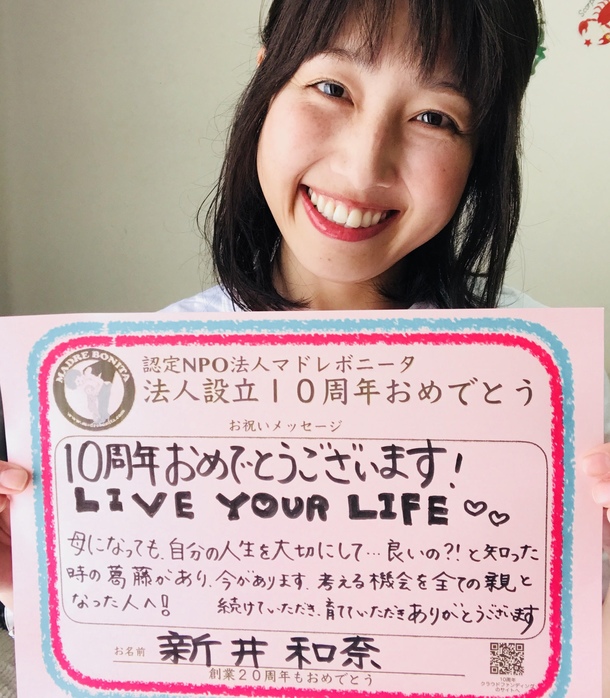 MADRE BONITA
www.madrebonita.com
認定NPO法人マドレボニータ
法人設立10周年おめでとう
お祝いメッセージ
10周年おめでとうございます!
LIVE YOUR LIFE ♡♡
母になっても、自分の人生を大切にして…良いの?!と知った
時の葛藤があり、今があります。考える機会を全ての親と
なった人へ! 続けていただき、育てていただきありがとうございます
お名前 新井 和奈
創業20周年もおめでとう
10周年
クラウドファンディング
のサイトへ